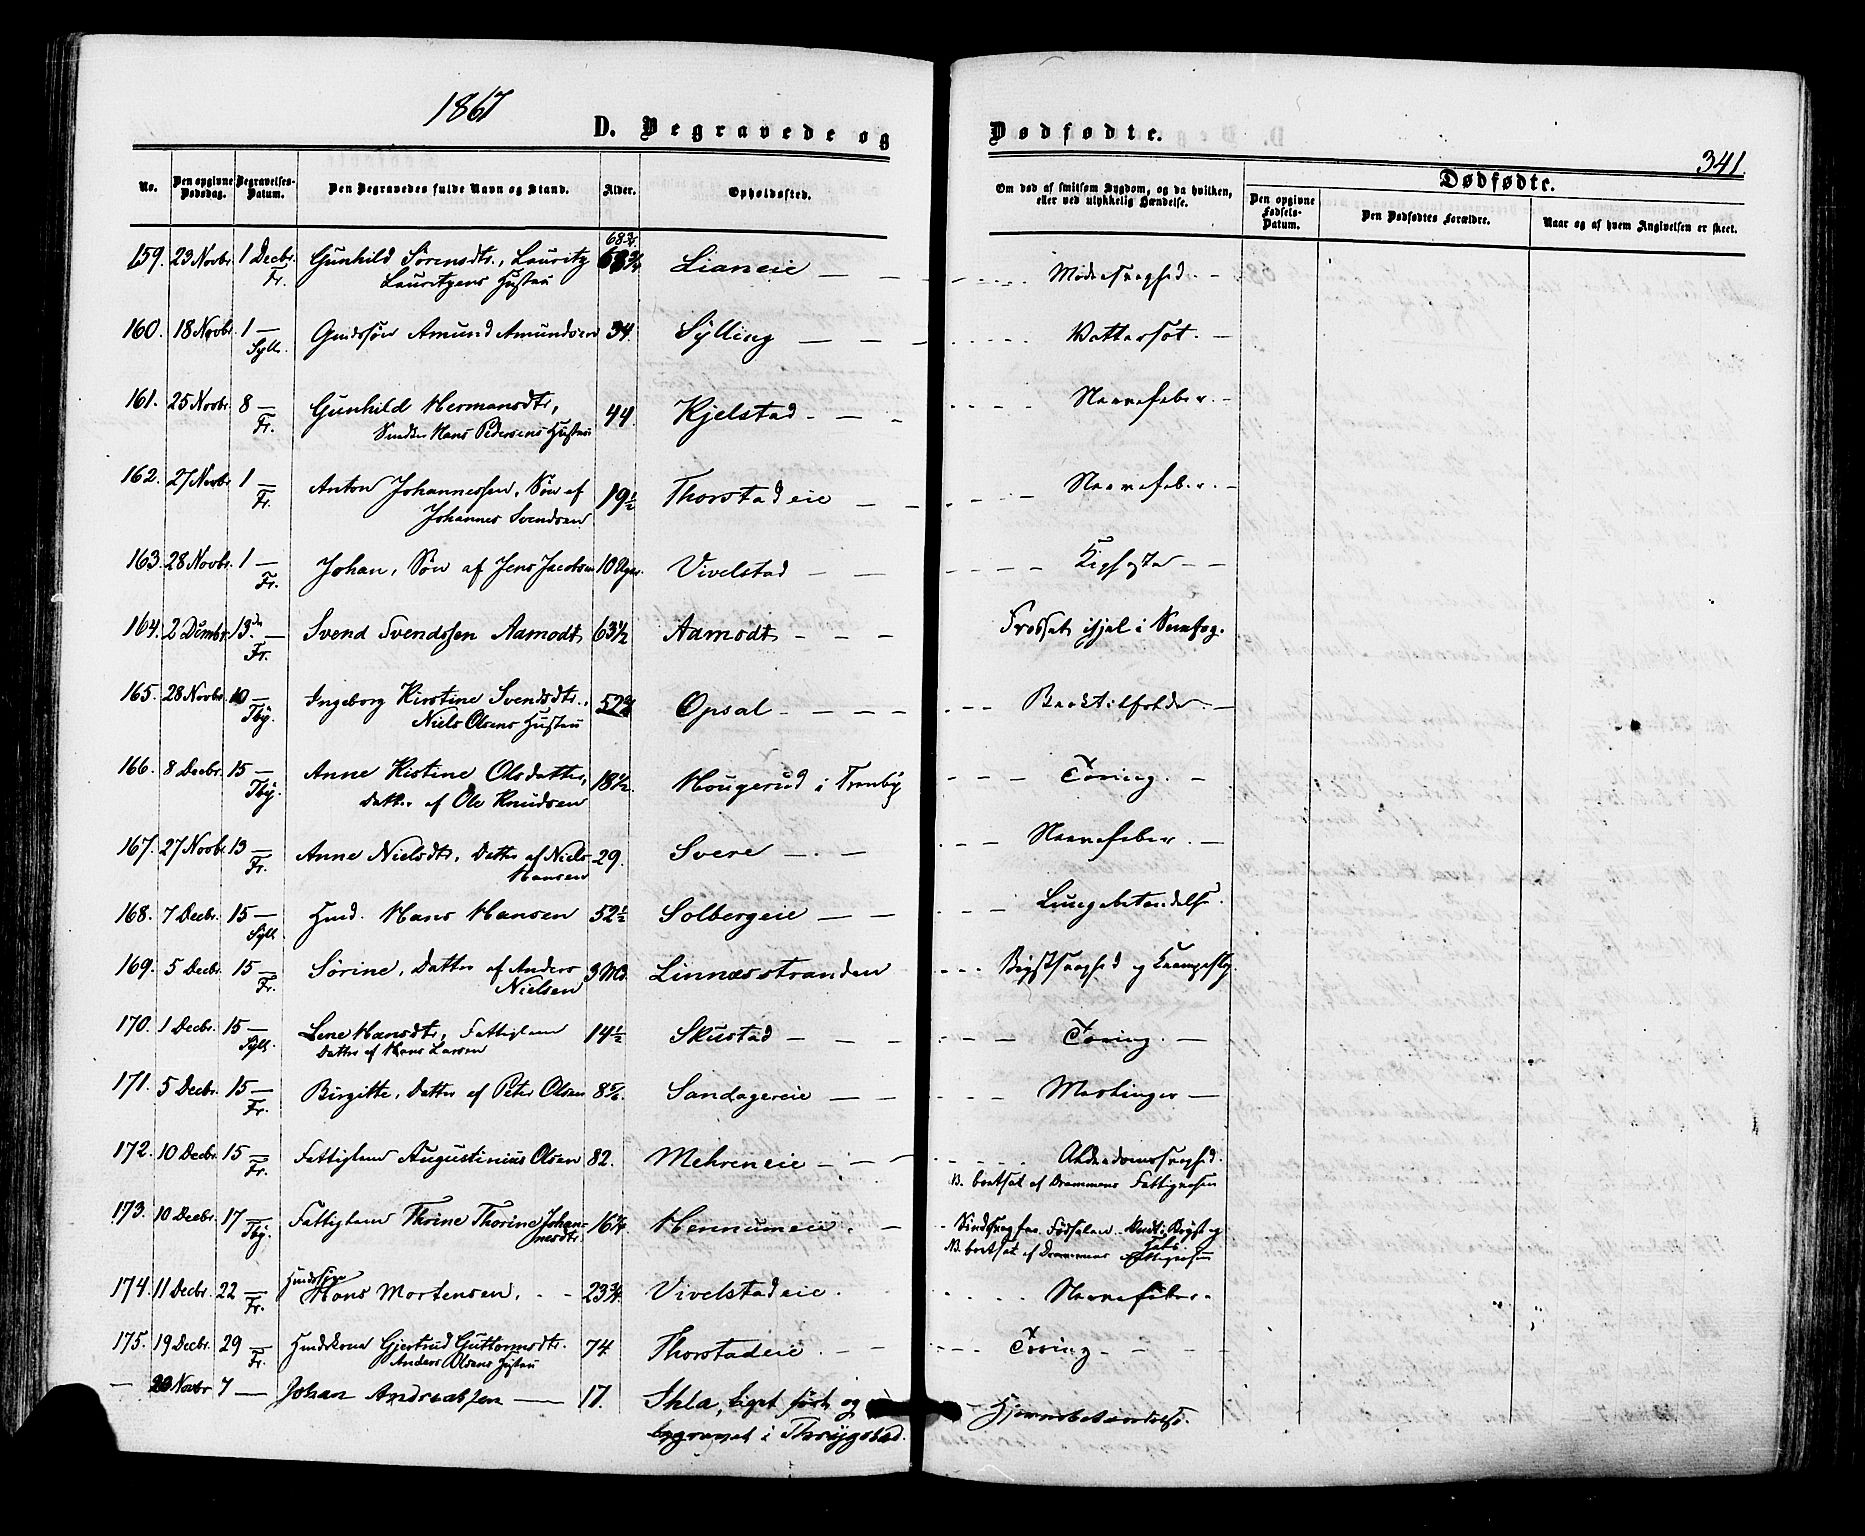 1867
D. Begravede og Dødfødte.
341.
No. Den opgivne Dødsdag. Begravelses-Datum. Den Begravedes fulde Navn og Stand. Alder. Opholdssted. Om død af smitsom Sygdom, og da hvilken, eller ved ulykkelig Hændelse. Dødfødte.
Den opgivne Fødsels-Datum. Den Dødfødtes Forældre. Naar og af hvem Angivelsen er skeet.
68¾
159. 23 Novbr. 1 Decbr. Gunhild Sörensdtr., Lauritz Lianeie
Fr. Lauritzens Hustru
160. 18 Novbr. 1 — Amund Amundsen 34. Sylling — Vattersot.
Syll.
161. 25 Novbr. 8 — Gunhild Hermansdtr., 44. Kjelstad — Nervefeber.
Fr. Hans Pedersens Hustru
162. 27 Novbr. 1 — Anton Johannessen, Søn af 19½ Thorstadeie — Nervefeber.
Fr. Johannes Svendsen
163. 28 Novbr. 1 — Johan, Søn af Jens Jacobsen 10 Uger. Vivelstad —
Fr.
164. 2 Dcmbr. 13. — Svend Svendssen Aamodt 63½ Aamodt — ihjel i
Fr.
165. 28 Novbr. 10 — Ingeborg Kirstine Svendsdtr., Opsal —
Tby. Niels Olsens Hustru
166. 8 Decbr. 15 — Anne Kistine Olsdatter, 18½. Hougerud i Tranby — Tæring.
Tby. Datter af Ole Knudsen
167. 27 Novbr. 13 — Anne Nielsdtr., Datter af Niels 29. Svere — Nervefeber.
Fr. Hansen
168. 7 Decbr. 15 — Hmd. Hans Hansen 52½ Solbergeie — Lungebetændelse.
Syll.
169. 5 Decbr. 15 — Sörine, Datter af Anders 3 Md. Linnæsstranden — Brystsvaghed og
Fr. Nielsen
170. 1 Decbr. 15 — Lene Hansdtr., Fattiglem 14½ Skustad — Tæring. —
Syll. Datter af Hans Larsen
171. 5 Decbr. 15 — Birgitte, Datter af Peter Olsen 8⅚. Sandagereie — Meslinger —
Fr.
172. 10 Decbr. 15 — Fattiglem Augustinius Olsen 82. Mehreneie — Alderdomssvaghed.
Fr. N. bortsat af Drammens Fattigvæsen
173. 10 Decbr. 17 — Fattiglem Thrine Thorine Johan- Hennumeie.
Tby. nesdtr. N. bortsat af Drammens Fattigvæsen
174. 11 Decbr. 22 — Hans Mortensen. 23¾. Vivelstadeie. Nervefeber.
Fr.
175. 19 Decbr. 29 — Huuskone Gjertrud Guttormsdtr. 74. Thorstadeie. Tæring —
Fr. Anders Olsens Hustru
— Novbr 7 — Johan Andreassen — 17. liget ført og Hjernebetændelse.
begravet i Thrygstad.